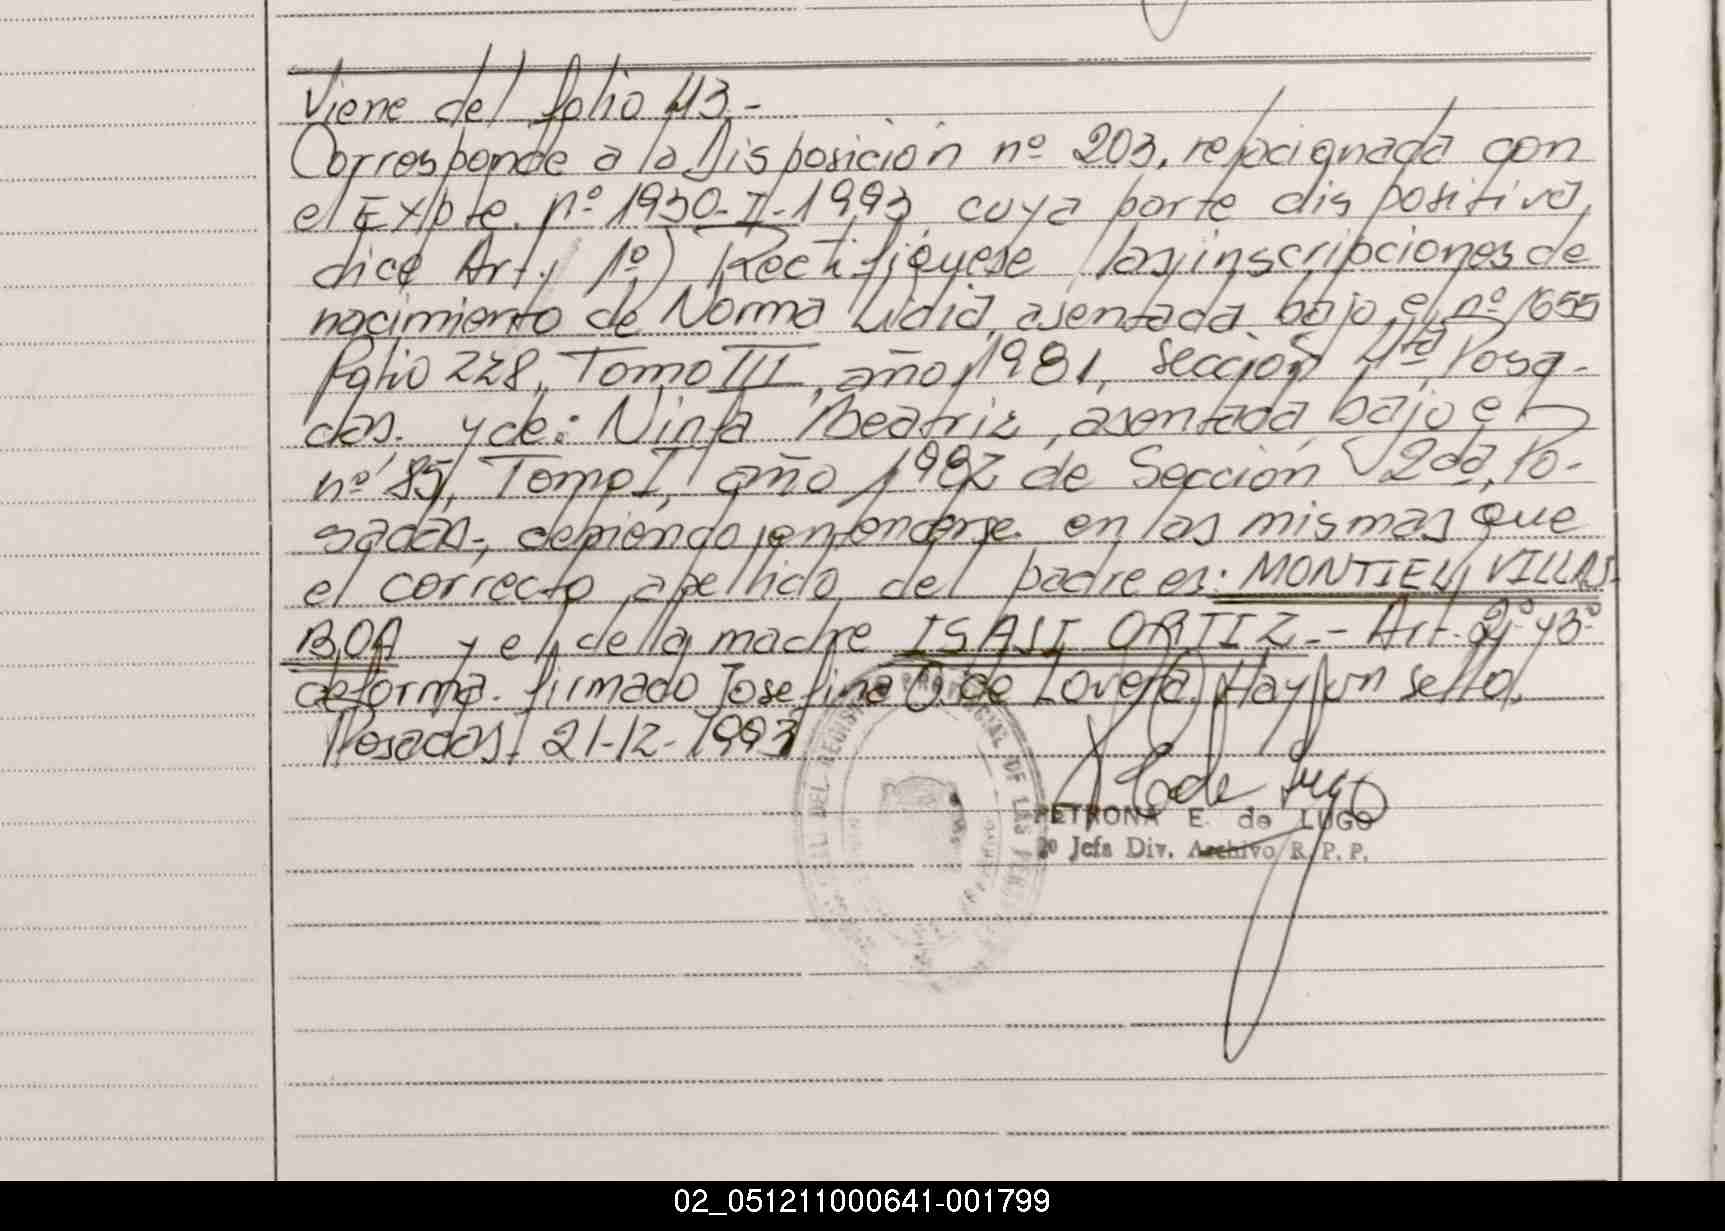 Viene del folio 43.-
Corresponde a la Disposición nº 203, relacionada con
el Expte. nº 1930-I-1993, cuya parte dispositiva,
dice Art. 1º) Rectifíquese las inscripciones de
nacimiento de Norma Lidia, asentada bajo el nº 1655
Folio 228, Tomo III, año 1981, Sección 4ta Posa-
das. y de: Ninfa Beatriz, asentada bajo el
nº 85, Tomo I, año 1982 de Sección 2da, Po-
sadas-, debiendo entenderse en las mismas que
el correcto apellido del padre es: MONTIEL VILLAS-
BOA y el de la madre ISASI ORTIZ.- Art. 2º y 3º
de forma. firmado Josefina O. de Lovera. Hay un sello.
Posadas. 21-12-1993
PETRONA E. de LUGO
Jefa Div. Archivo R. P. P.
02_051211000641-001799